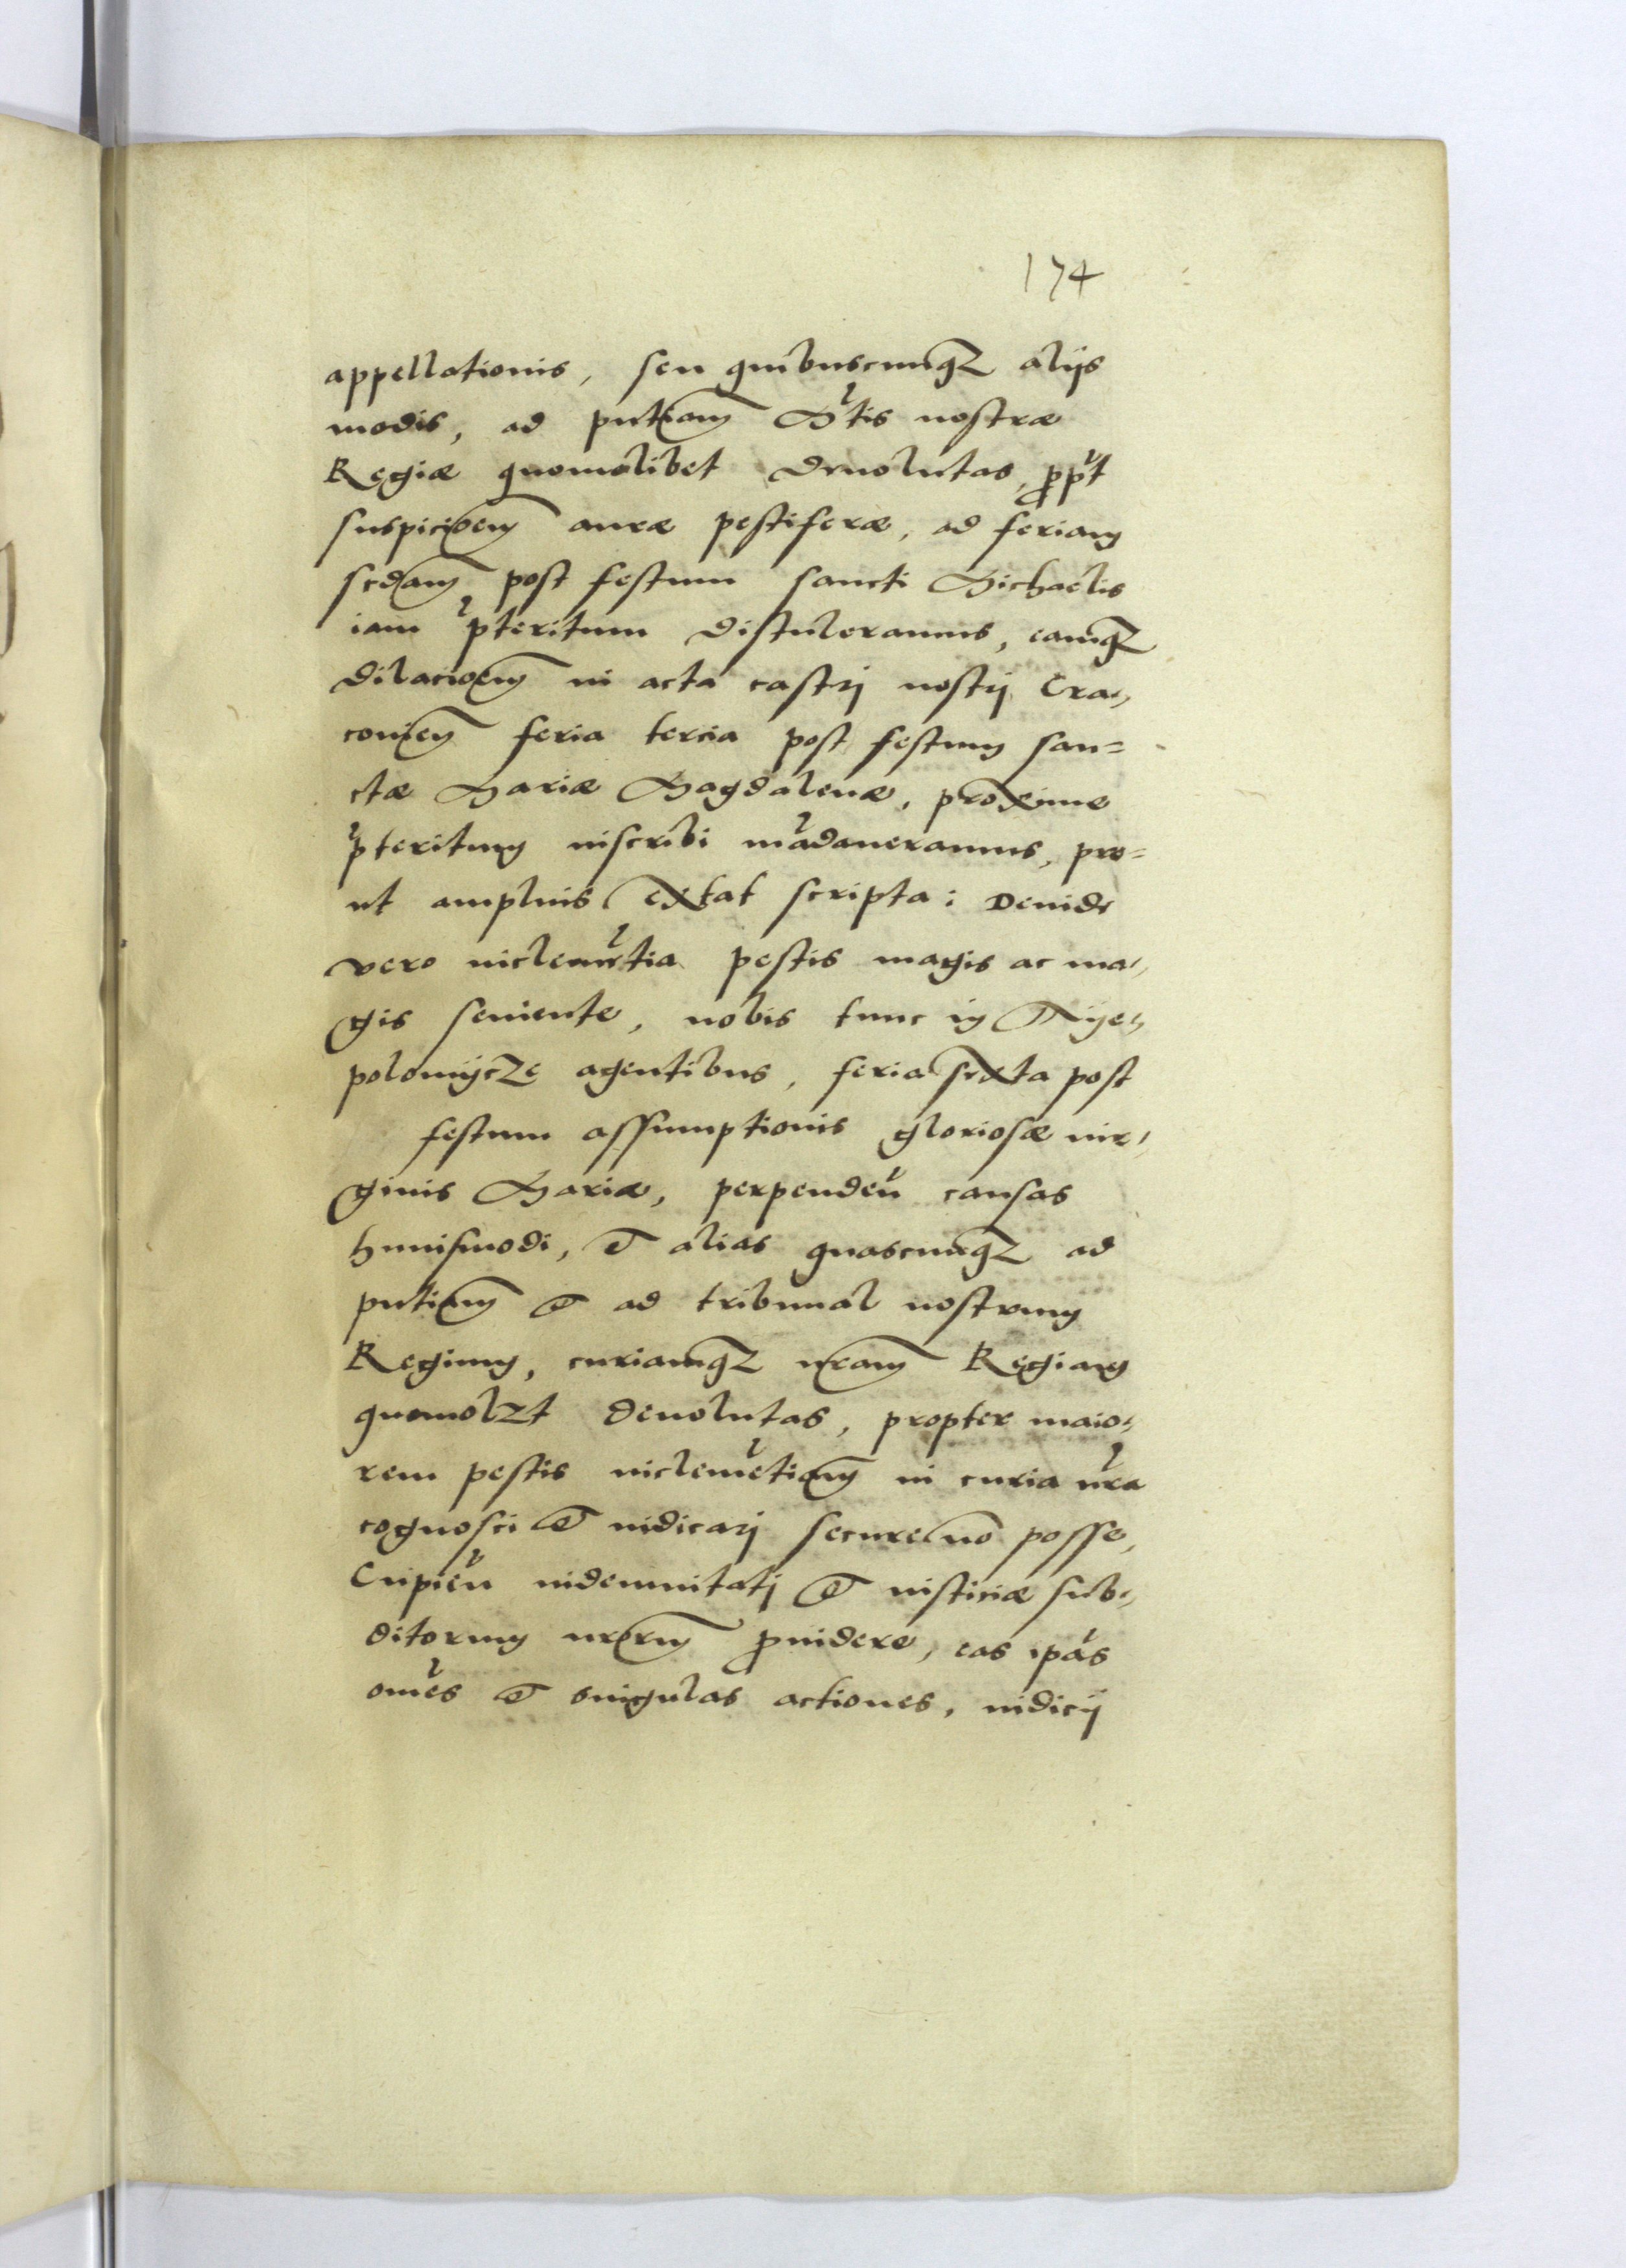 174
appellationis, seu quibuscumqꝫ alijs
modis, ad pntiam Mtis nostræ
Regiæ quomolibet deuolutas, ꝓpt
suspicioem auræ pestiferæ, ad feriam
scdam post festum sancti Michaelis
iam pteritum distuleramus, eamqꝫ
dilacioem in acta castrj nostrj Cra„
couien feria tercia post festum san=
ctæ Mariæ Magdalenæ, proxime
pteritum inscribi mādaueramus, pro=
ut amplius extat scripta: Deinde
vero inclemētia pestis magis ac ma„
gis seuiente, nobis tunc in Nÿe„
polomÿcze agentibus, feria sexta post
festum assumptionis gloriosæ vir„
ginis Mariæ, perpendeñ causas
huiusmodi, et alias quascumqꝫ ad
pntiam et ad tribunal nostrum
Regium, curiamqꝫ nram Regiam
quomolꝫt deuolutas, propter maio„
rem pestis inclemētiam in curia nra
cognosci et iudicarj secure nō posse,
Cupieñ indemnitatj et iusticiæ sub„
ditorum nrorum ꝓuidere, eas ipas
omēs et singulas actiones, iudicij